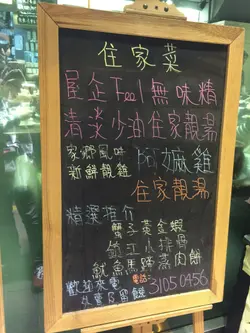 住家菜
屋企Feel無味精
清淡少油住家靚湯
家鄉風味
新鮮靚雞
阿嫲雞
住家靚湯
精選推介
蟹子黃金蝦
鎮江小排骨
魷魚馬蹄蒸肉餅
歡迎來電
外賣及留雙
電話:
31050456